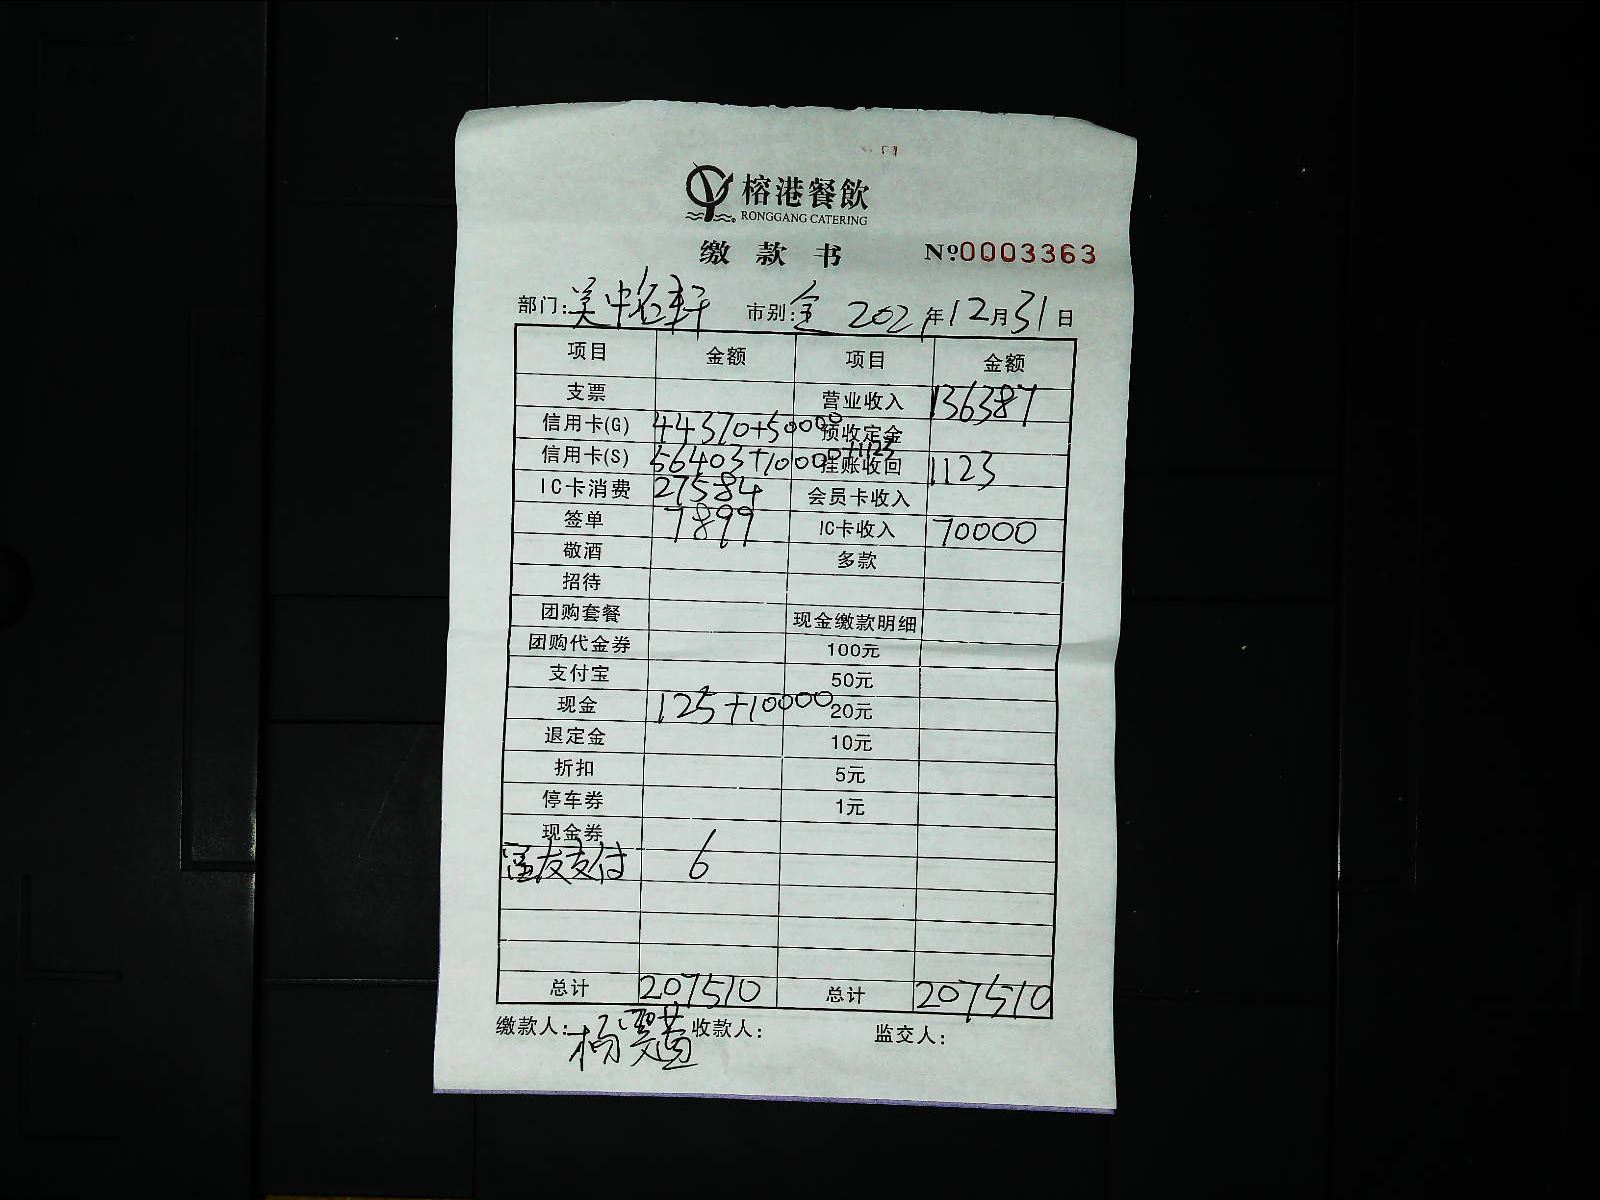 榕港餐飲
RONGGANG CATERING
缴款书 Nº:0003363
部门:吴中名轩 市别:全 2021年12月31日
项目 金额 项目 金额
支票 营业收入 136387
信用卡(G) 44370+50000 预收定金
信用卡(S) 56403+10000+1123 挂账收回 1123
IC卡消费 27584 会员卡收入
签单 7899 IC卡收入 70000
敬酒 多款
招待
团购套餐 现金缴款明细
团购代金券 100元
支付宝 50元
现金 125+10000 20元
退定金 10元
折扣 5元
停车券 1元
现金券
富友支付 6
总计 207510 总计 207510
缴款人: 收款人: 监交人: